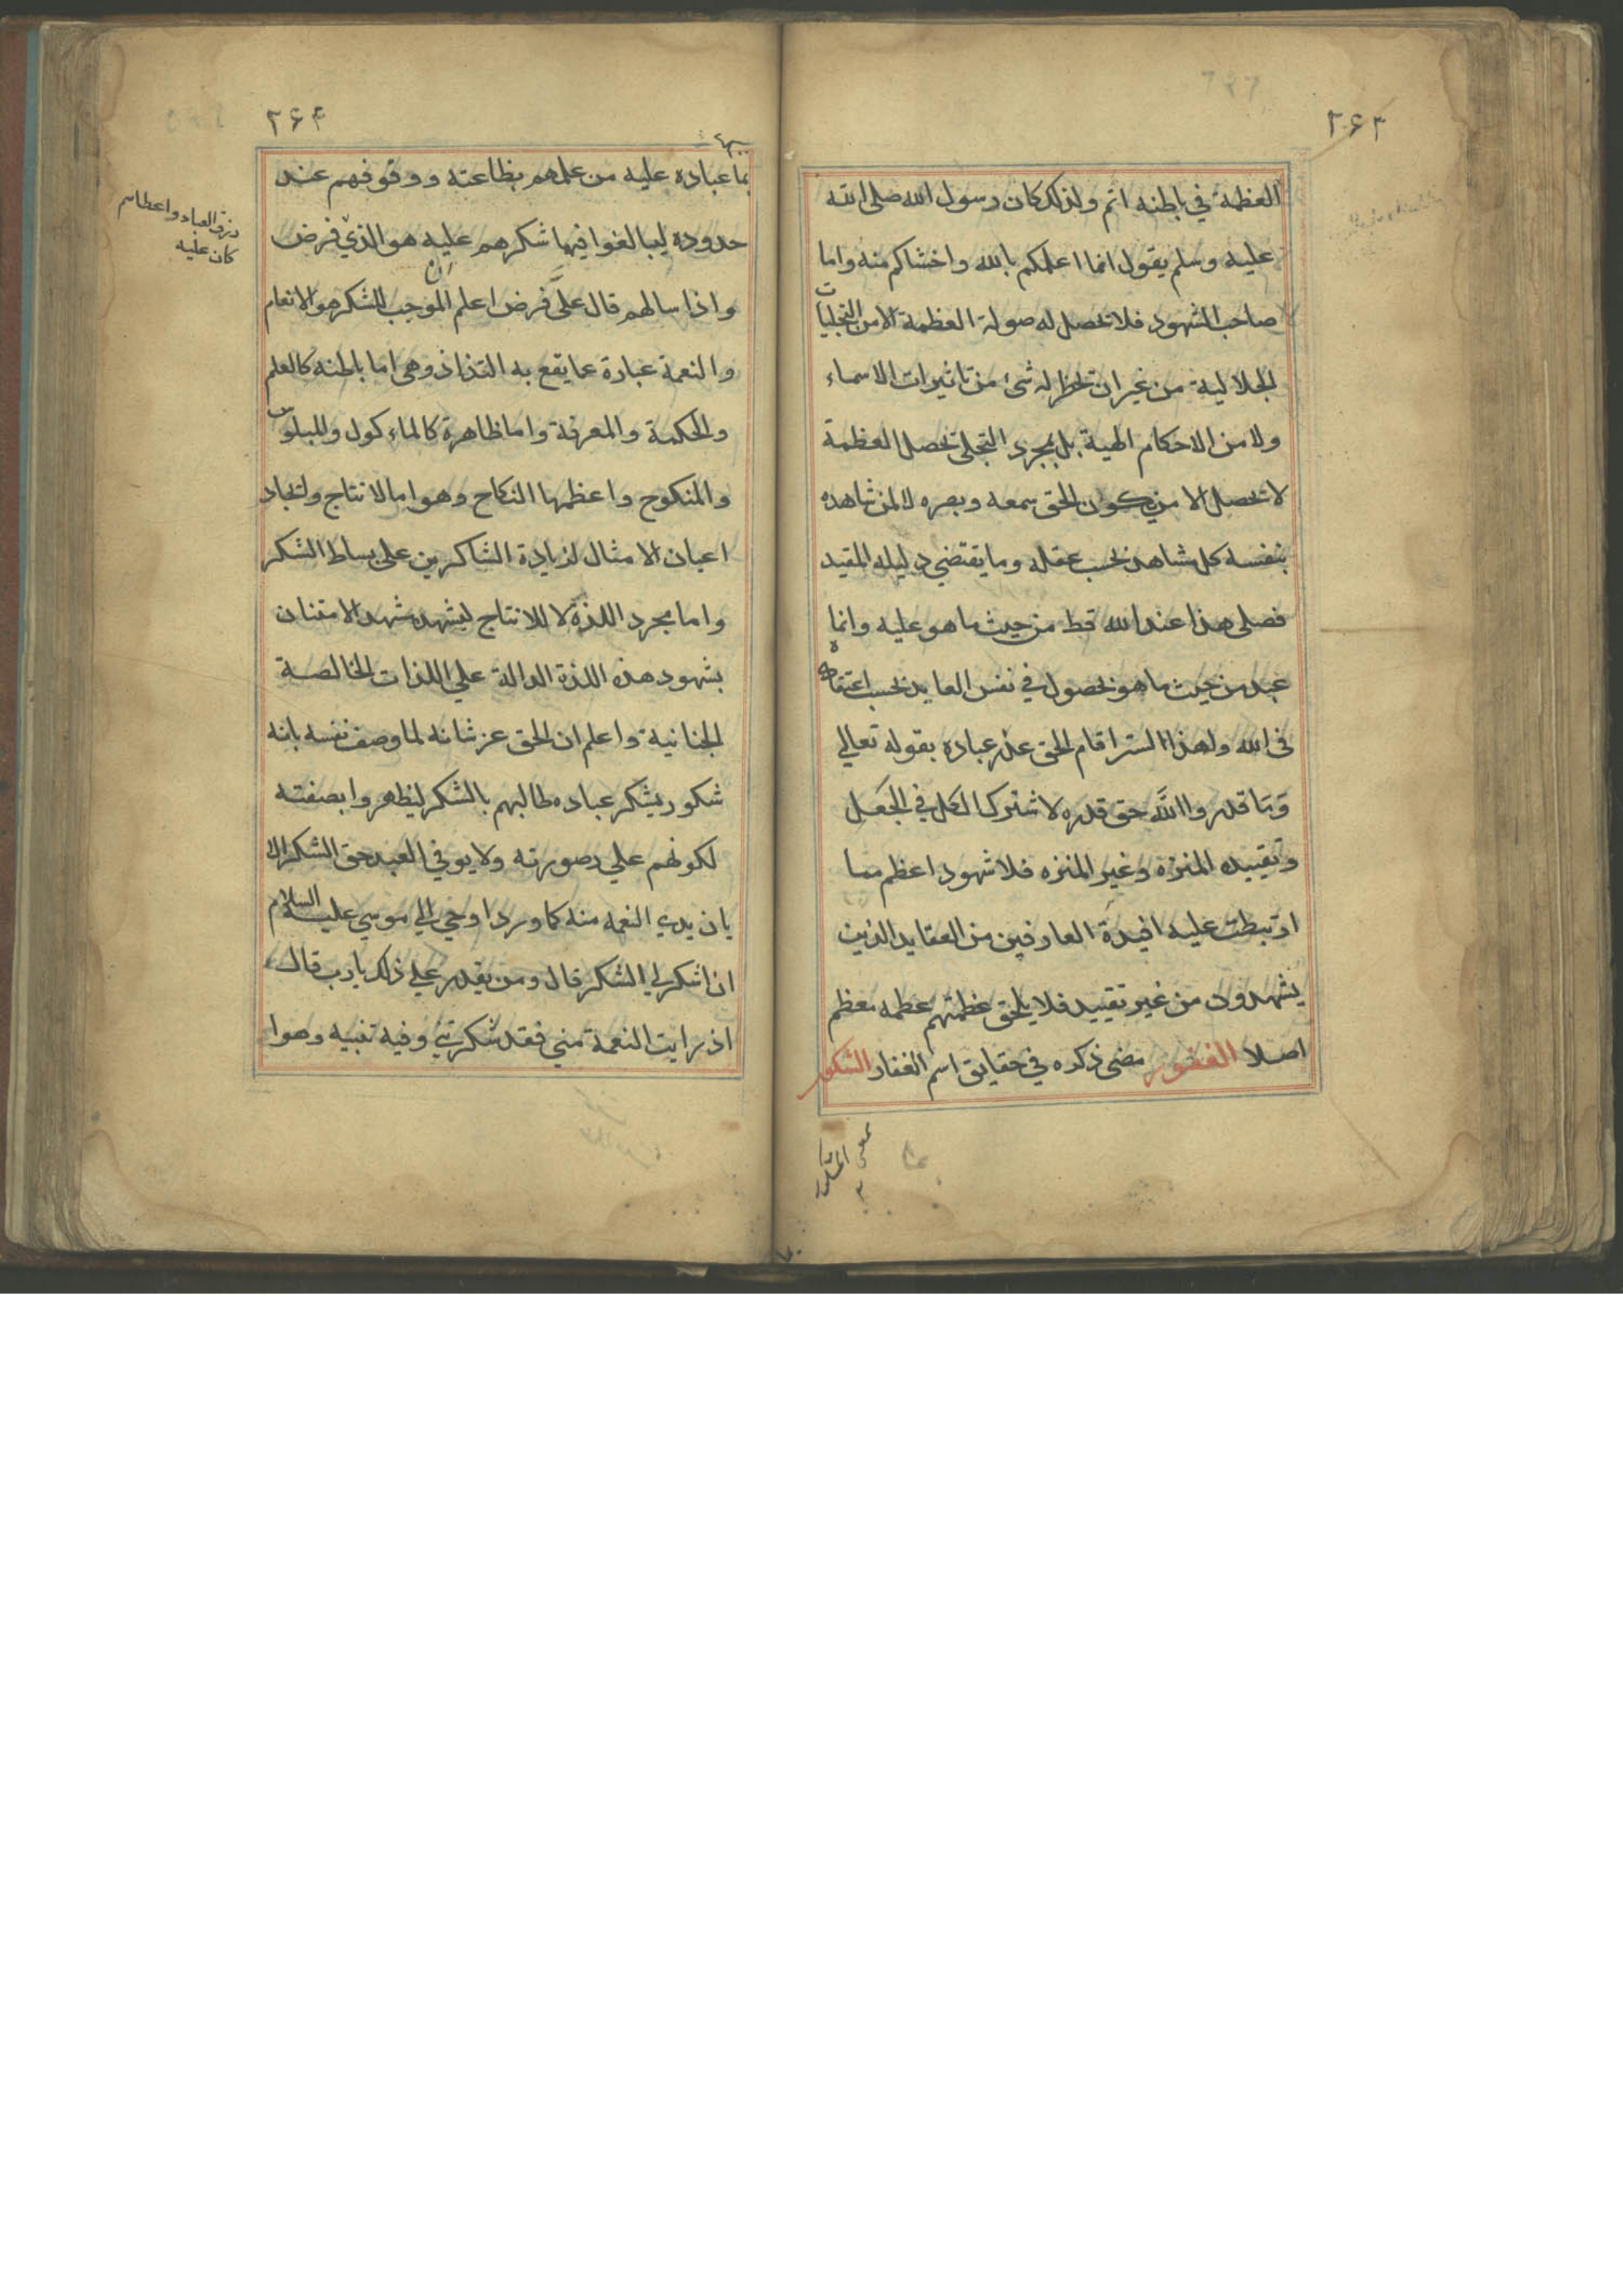 ۲۶۳
العظمة في باطنه اتم ولذلك كان رسول الله صلى الله
عليه وسلم يقول انما اعلمكم بالله واخشاكم منه واما
صاحب الشهود فلا تحصل له صولة العظمة الا من التجليات
الجلالية من غير ان تخطر له شئ من تاثيرات الاسماء
ولا من الاحكام الهية بل بمجرد التجلي تحصل العظمة
لا تحصل الا من يكون الحق سمعه وبصره لا لمن شاهده
بنفسه كل مشاهد بحسب عقله وما يقتضي دليله المقيد
فصلى هذا عند الله قط من حيث ما هو عليه وانما
عبد من حيث ما هو بحصول في نفس العابد بحسب اعتقاده
في الله ولهذا الستر اقام الحق عذر عباده بقوله تعالي
وَمَا قدروا اللَّه حق قدره لاشتراك الكل في الجَعل
وتقييده المنزه وغير المنزه فلا شهود اعظم مما
ارتبطت عليه افيدة العارفين من العقايد الذين
يشهدون من غير تقييد فلا يلحق عظمتهم عظمه معظم
اصلا الغفور مضى ذكره في حقايق اسم الغفار الشكور
۲۶۴
بما عباده عليه من عملهم بطاعته ووقوفهم عند
حدوده ليبالغوا فيما شكرهم عليه هو الذي فرض
واذا سالهم قال علَى فرض اعلم ان الموجب للشكر هو الانعام
والنعمة عبارة عما يقع به التذاذ وهي اما باطنه كالعلم
والحكمة والمعرفة واما ظاهرة كالماءكول والملبوس
والمنكوح واعظمها النكاح وهو اما لانتاج ولتجاد
اعيان الامثال لزيادة الشاكرين على بساط الشكر
واما مجرد اللذة لا للانتاج ليشهد مشهد الامتنان
بشهود هذه اللذة الدالة علي اللذات الخالصة
الجنانية واعلم ان الحق عز شانه لما وصف نفسه بانه
شكور يشكر عباده طالبهم بالشكر ليظهروا بصفته
لكونهم علي صورته ولا يوفي العبد حق الشكر الا
بان يدي النعمه منه كما ورد اوحي الي موسي عليه السلام
ان اشكر لي الشكر قال ومن يقدر علي ذلك يا رب قال
اذ رايت النعمة مني فقد شكرتني وفيه تنبيه وهوا
رزق العباد واعطاهم
كان عليه